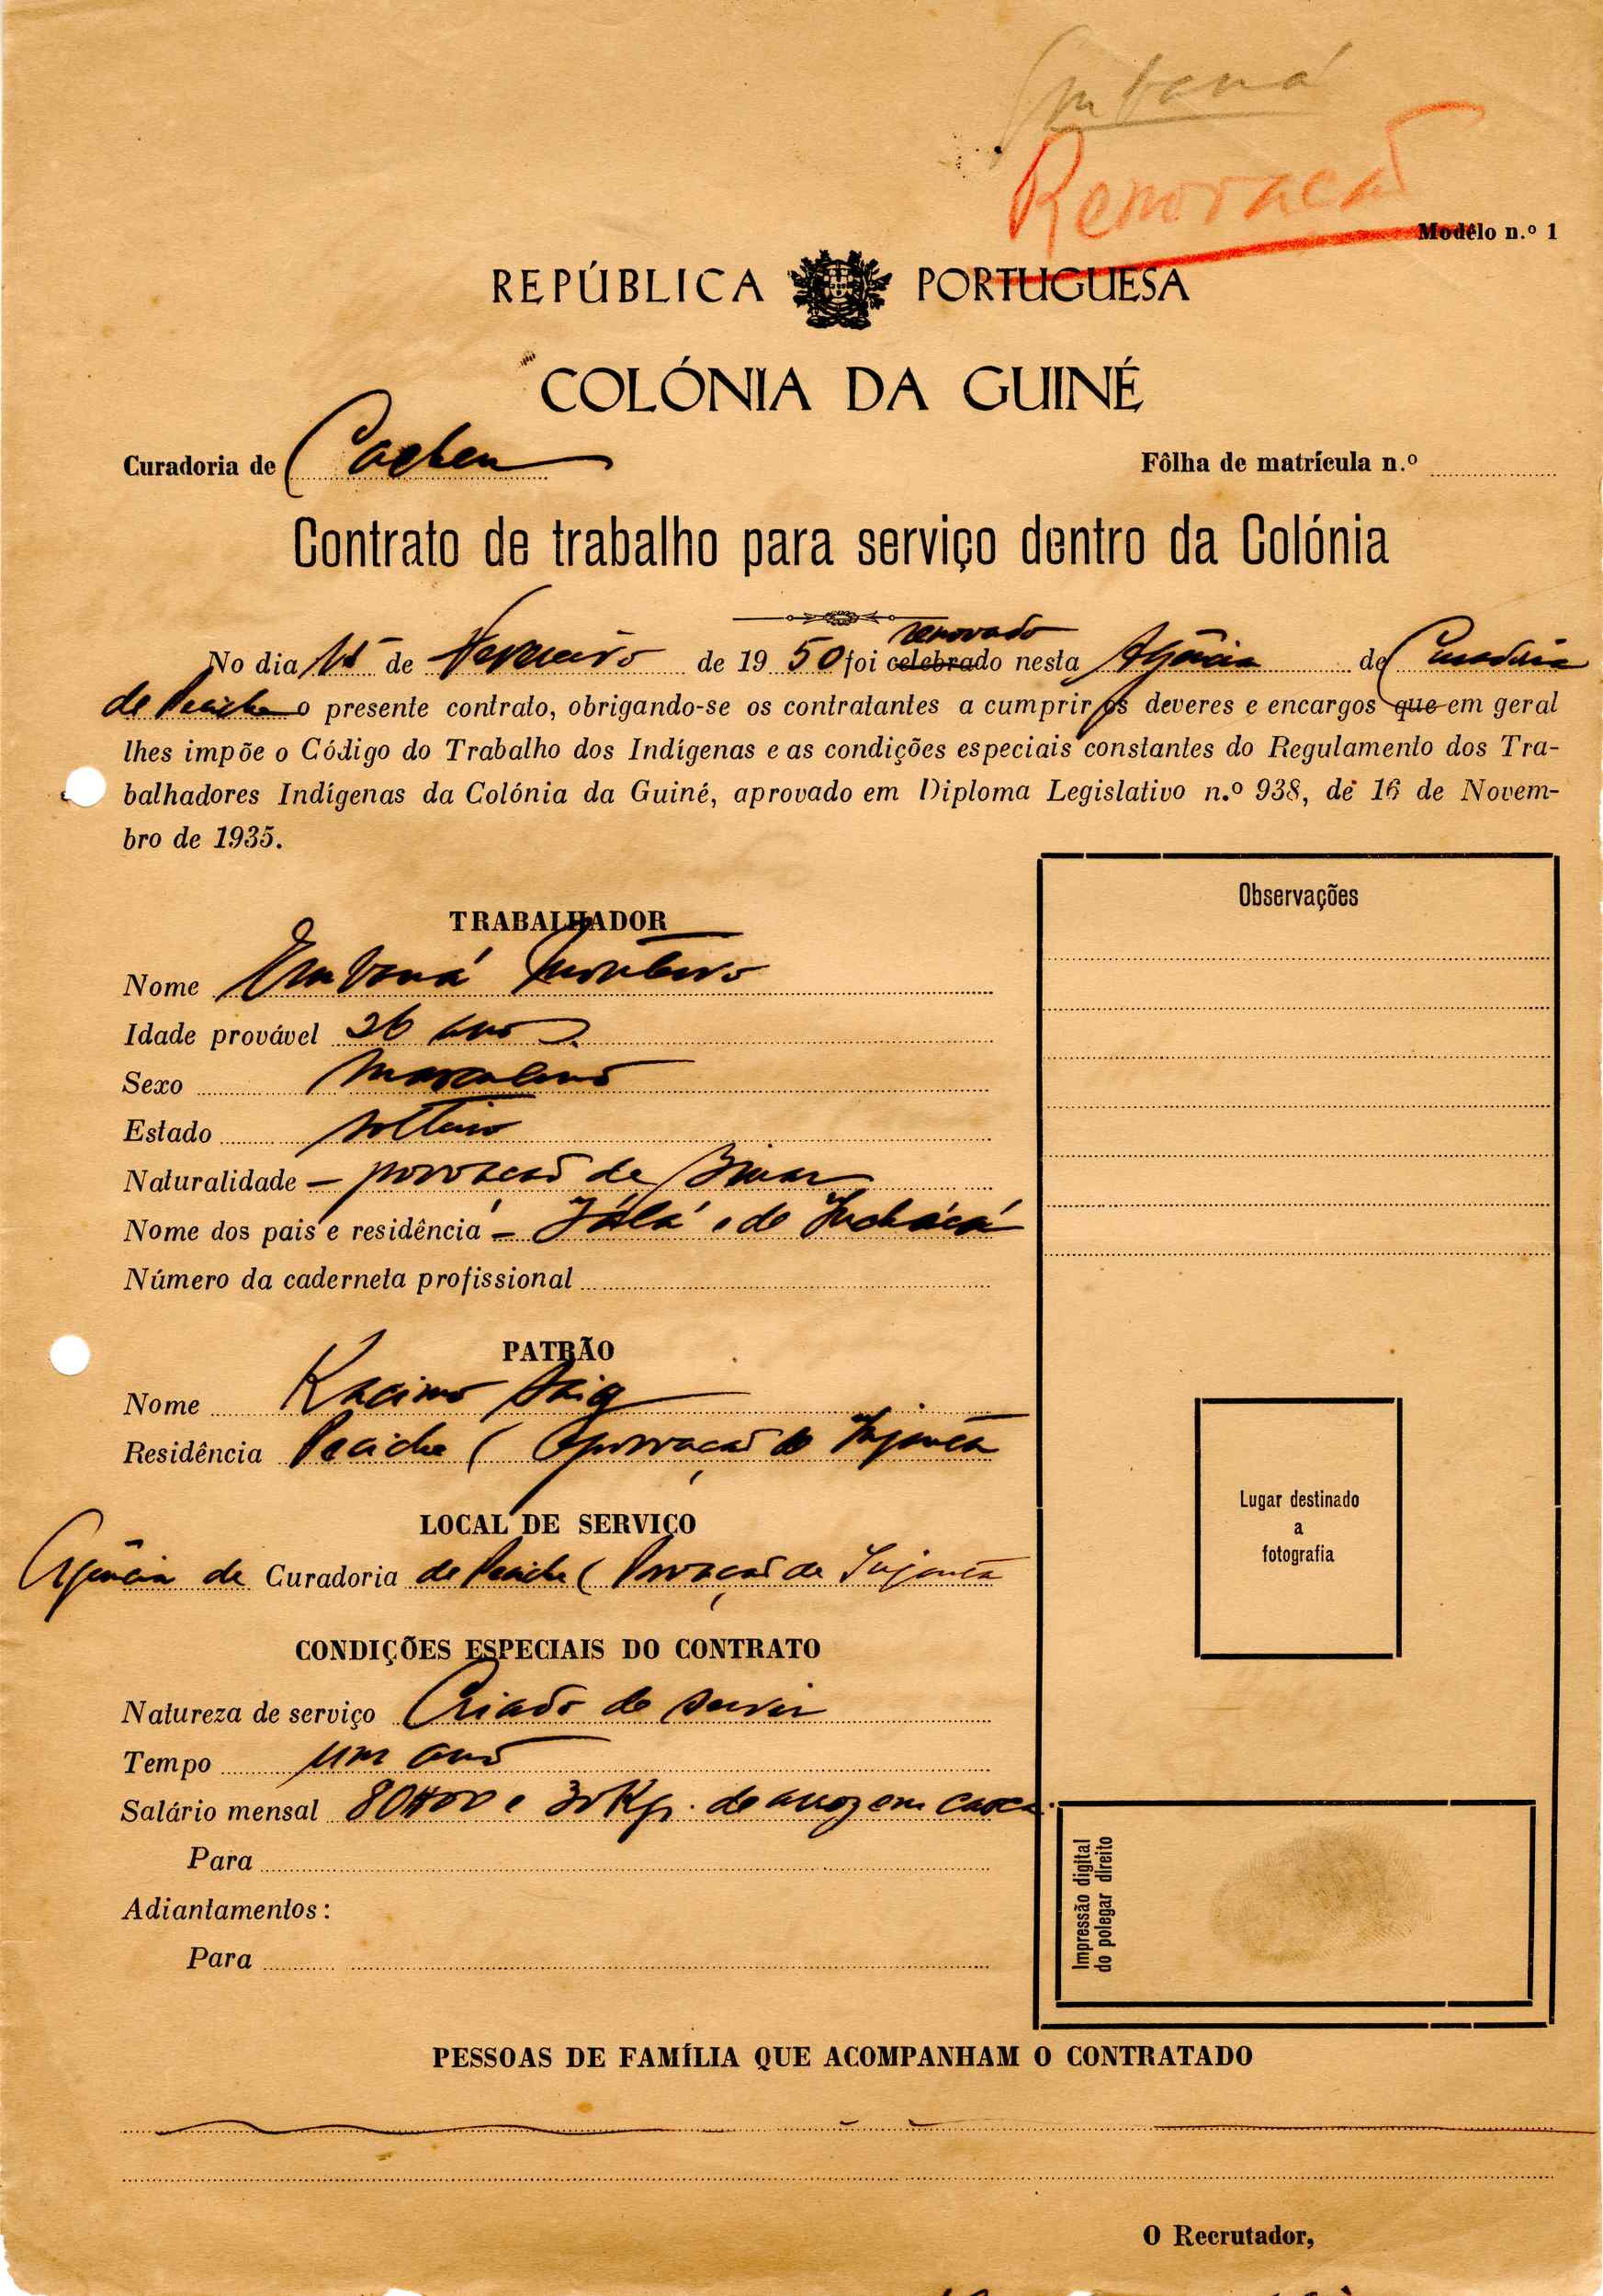 Embaná
Renovação
Modêlo n.º 1
REPÚBLICA PORTUGUESA
COLÓNIA DA GUINÉ
Curadoria de Cacheu
Fôlha de matrícula n.º
Contrato de trabalho para serviço dentro da Colónia
renovado
No dia de Fevereiro de 1950 foi celebrado nesta Agência de Curadoria
de Pecixe o presente contrato, obrigando-se os contratantes a cumprir os deveres e encargos que em geral
lhes impõe o Código do Trabalho dos Indígenas e as condições especiais constantes do Regulamento dos Tra-
balhadores Indígenas da Colónia da Guiné, aprovado em Diploma Legislativo n.º 938, de 16 de Novem-
bro de 1935.
Observações
TRABALHADOR
Nome Embaná Monteiro
Idade provável 26 anos
Sexo Masculino
Estado solteiro
Naturalidade – povoação de
Nome dos pais e residência – e de
Número da caderneta profissional
PATRÃO
Nome
Residência Pecixe (povoação de
LOCAL DE SERVIÇO
Agência de Curadoria de Pecixe (Povoação de
Lugar destinado
a
fotografia
CONDIÇÕES ESPECIAIS DO CONTRATO
Natureza de serviço Criado de servir
Tempo um ano
Salário mensal 80$00 e 30 Kg. de arroz em casca.
Para
Adiantamentos:
Para
Impressão digital
do polegar direito
PESSOAS DE FAMÍLIA QUE ACOMPANHAM O CONTRATADO
O Recrutador,